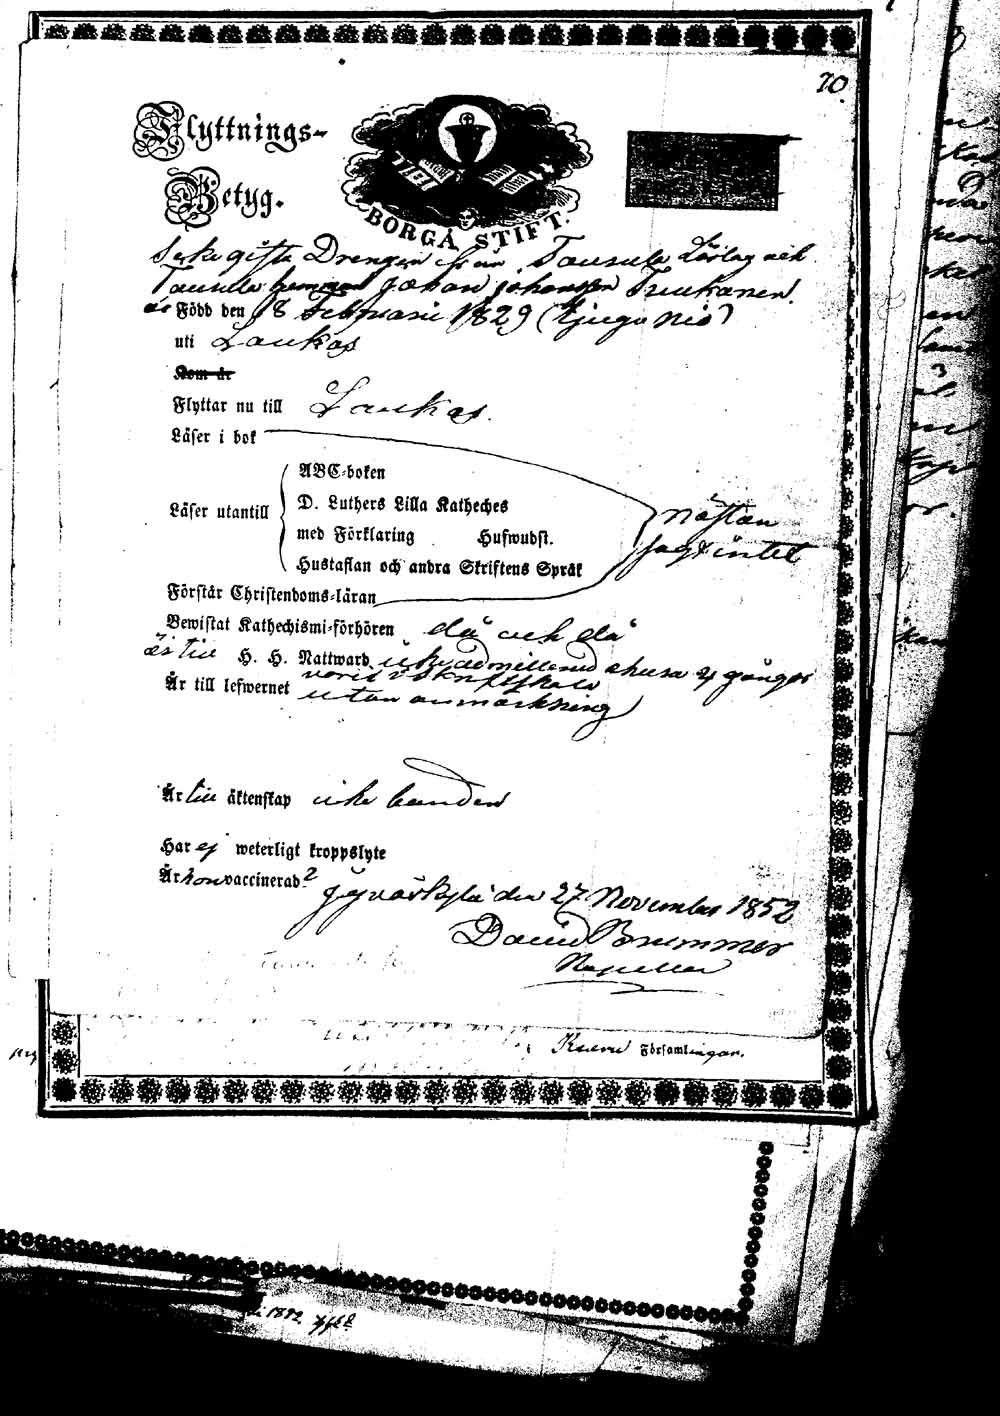 70.
Flyttnings-
Betyg.
BORGÅ STIFT.
gifta Drengen från Tausula Lörlag och
Tausula hemman Johan Johansson Tuukanen.
är Född den 18 Februarii 1829 (tjugo nio)
uti Laukas
Kom år
Flyttar nu till Laukas.
Läser i bok
ABC-boken
Läser utantill
D. Luthers Lilla Katheches
med Förklaring Hufwudst.
Hustaflan och andra Skriftens Språk
nästan
sagt intet
Förstår Christendoms-läran
Bewistat Kathechismi-förhören då och då
är till H. H. Nattward icke admitterad ehuru 4 gånger
varit i Skriftskola
Är till lefwernet utan anmärkning
Är till äktenskap icke bunden
Har ej weterligt kroppslyte
Är hon vaccinerad?
Jyväskylä den 27 November 1852
David Brummer
Kapellan
Församlingar.
1892